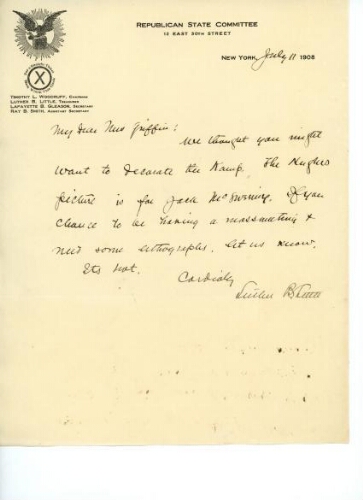 REPUBLICAN STATE COMMITTEE
12 EAST 30TH STREET
NEW YORK, July 11 1908
TIMOTHY L. WOODRUFF, CHAIRMAN
LUTHER B. LITTLE, TREASURER
LAFAYETTE B. GLEASON, SECRETARY
RAY B. SMITH, ASSISTANT SECRETARY
My dear Miss Griffin:
We thought you might
want to decorate the Kamp. The Hughes
picture is for Jack. If you
chance to be having a massmeeting &
need some lithographs, let us know.
Its hot.
Cordially
Luther B Little